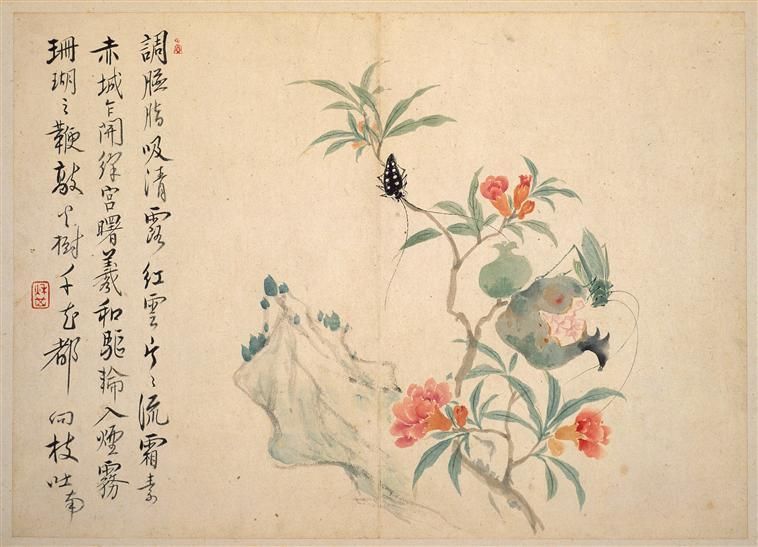 調臙脂吸清露紅雲片〻流霜素
赤城乍開絳宮曙羲和驅輪入煙霧
珊瑚之鞭敲火樹千花都向枝吐南